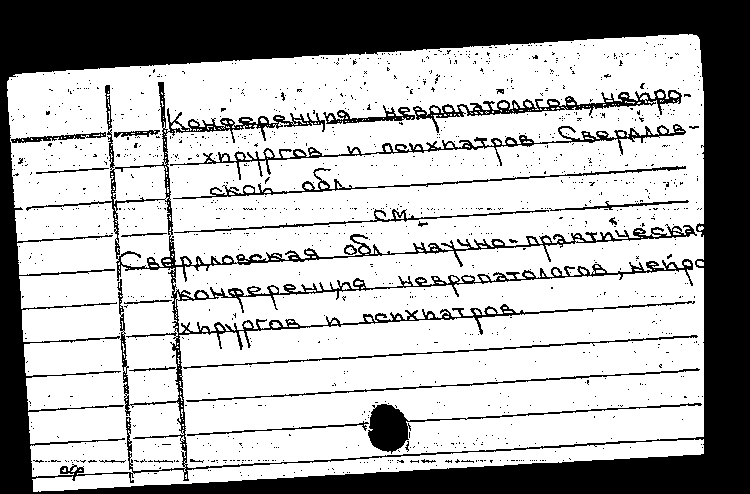 Конференция невропатологов, нейро-
хирургов и психиатров Свердлов-
ской обл.
см.
Свердловская обл. научно-практическая
конференция невропатологов, нейро
хирургов и психиатров.